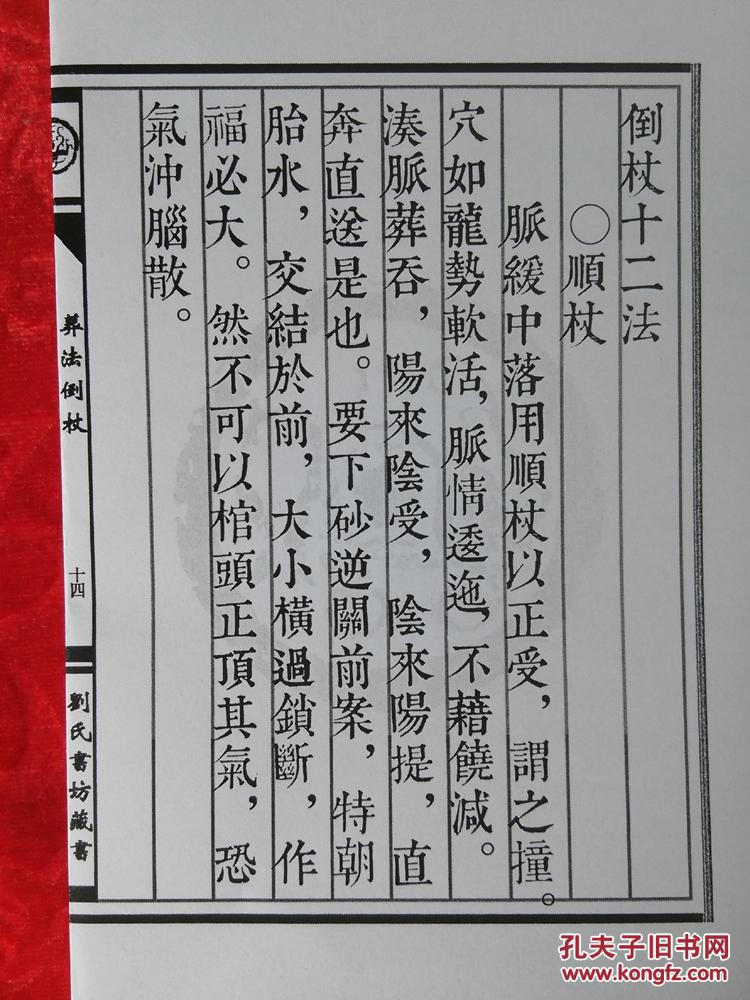 倒杖十二法
○順杖
脈緩中落用順杖以正受，謂之撞。
穴如龍勢軟活，脈情逶迤，不藉饒減。
湊脈葬吞，陽來陰受，陰來陽提，直
奔直送是也。要下砂逆關前案，特朝
胎水，交結於前，大小橫過鎖斷，作
福必大。然不可以棺頭正頂其氣，恐
氣沖腦散。
葬法倒杖
十四
劉氏書坊藏書
孔夫子旧书网
KONGFZ.COM